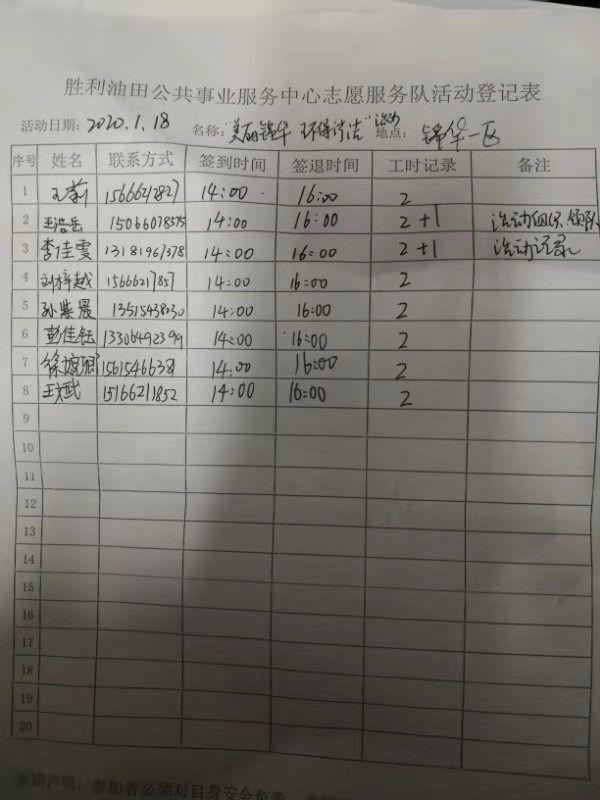 胜利油田公共事业服务中心志愿服务队活动登记表
活动日期：2020.1.18 名称："美丽锦华 环保清洁"活动 地点：锦华一区
序号 姓名 联系方式 签到时间 签退时间 工时记录 备注
1 王莉 15666212827 14:00 16:00 2
2 王浩岳 15066078575 14:00 16:00 2+1 活动组织、领队
3 李佳雯 13181967378 14:00 16:00 2+1 活动记录
4 刘梓越 15666217857 14:00 16:00 2
5 孙紫晨 13515438030 14:00 16:00 2
6 彭佳钰 13306492399 14:00 16:00 2
7 徐 1561546638 14:00 16:00 2
8 王斌 15166211852 14:00 16:00 2
9
10
11
12
13
14
15
16
17
18
19
20
诺声明：参加者必须对自身安全负责